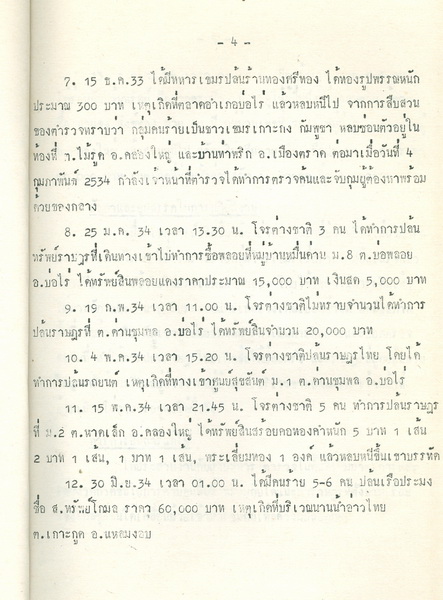 - 4 -
7. 15 ธ.ค.33 ได้มีทหารเขมรปล้นร้านทองศรีทอง ได้ทองรูปพรรณหนัก
ประมาณ 300 บาท เหตุเกิดที่ตลาดอำเภอบ่อไร่ แล้วหลบหนีไป จากการสืบสวน
ของตำรวจทราบว่า กลุ่มคนร้ายเป็นชาวเขมรเกาะกง กัมพูชา หลบซ่อนตัวอยู่ใน
ท้องที่ ต.ไม้รูด อ.คลองใหญ่ และบ้านท่าพริก อ.เมืองตราด ต่อมาเมื่อวันที่ 4
กุมภาพันธ์ 2534 กำลังเจ้าหน้าที่ตำรวจได้ทำการตรวจค้นและจับกุมผู้ต้องหาพร้อม
ด้วยของกลาง
8. 25 ม.ค. 34 เวลา 13.30 น. โจรต่างชาติ 3 คน ได้ทำการปล้น
ทรัพย์ราษฎรที่เดินทางเข้าไปทำการซื้อพลอยที่หมู่บ้านหมื่นด่าน ม.8 ต.บ่อพลอย
อ.บ่อไร่ ได้ทรัพย์สินพลอยแดงราคาประมาณ 15,000 บาท เงินสด 5,000 บาท
9. 19 ก.พ.34 เวลา 11.00 น. โจรต่างชาติไม่ทราบจำนวนได้ทำการ
ปล้นราษฎรที่ ต.ด่านชุมพล อ.บ่อไร่ ได้ทรัพย์สินจำนวน 20,000 บาท
10. 4 พ.ค.34 เวลา 15.20 น. โจรต่างชาติปล้นราษฎรไทย โดยได้
ทำการปล้นรถยนต์ เหตุเกิดที่ทางเข้าศูนย์สุขสันต์ ม.1 ต.ด่านชุมพล อ.บ่อไร่
11. 15 พ.ค.34 เวลา 21.45 น. โจรต่างชาติ 5 คน ทำการปล้นราษฎร
ที่ ม.2 ต.หาดเล็ก อ.คลองใหญ่ ได้ทรัพย์สินสร้อยคอทองคำหนัก 5 บาท 1 เส้น
2 บาท 1 เส้น, 1 บาท 1 เส้น, พระเลี่ยมทอง 1 องค์ แล้วหลบหนีขึ้นเขาบรรทัด
12. 30 มิ.ย.34 เวลา 01.00 น. ได้มีคนร้าย 5-6 คน ปล้นเรือประมง
ชื่อ ส.ทรัพย์โกมล ราคา 60,000 บาท เหตุเกิดที่บริเวณน่านน้ำอ่าวไทย
ต.เกาะกูด อ.แหลมงอบ